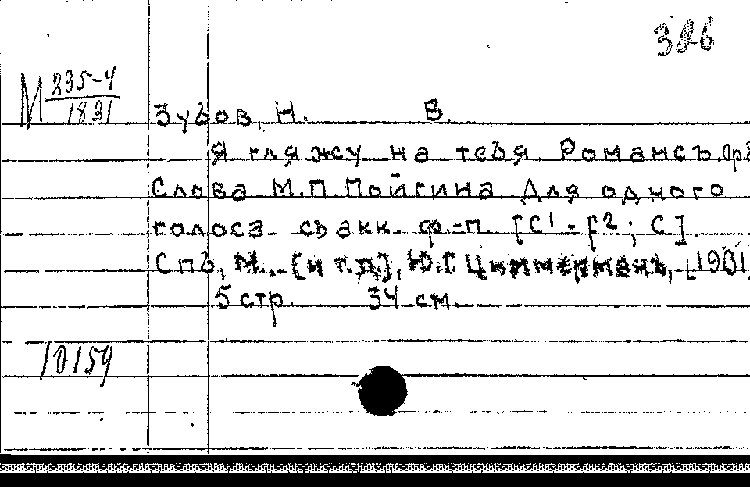 326
М 235-4
1831
Зубов, Н. В.
Я гляжу на тебя. Романсъ. Ор
Слова М.П. Пойгина Для одного
голоса съ акк. ф.-п. [C¹-F²; C].
Спб., М., [и т.д.], Ю.Г. Циммерманъ, [1901]
5 стр. 34 см.
10159